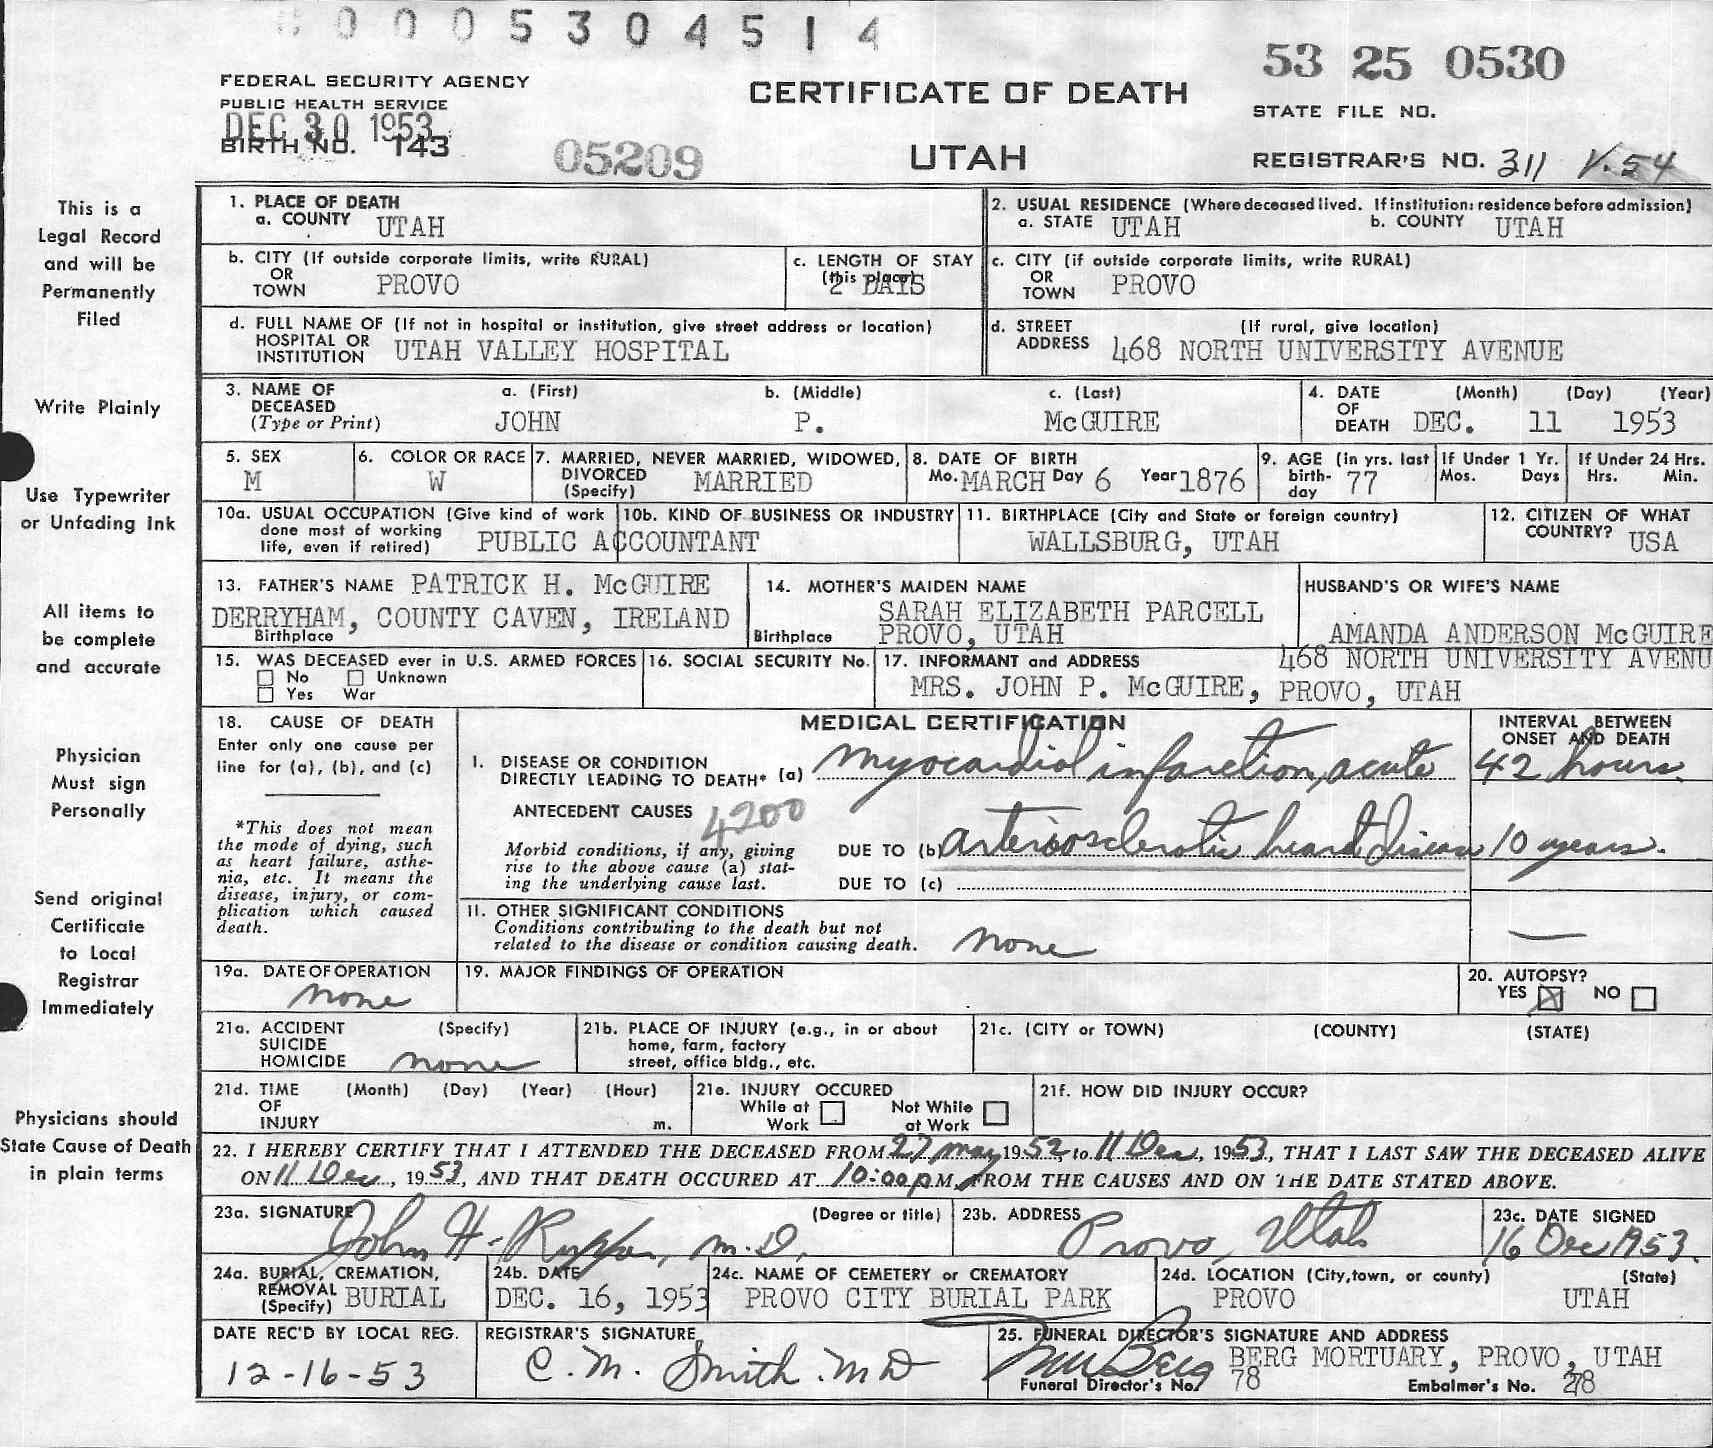 0005304514
53 25 0530
FEDERAL SECURITY AGENCY
PUBLIC HEALTH SERVICE
CERTIFICATE OF DEATH
STATE FILE NO.
DEC 30 1953
BIRTH NO. 143
05209
UTAH
REGISTRAR'S NO. 311 V.54
This is a
Legal Record
and will be
Permanently
Filed
Write Plainly
Use Typewriter
or Unfading Ink
All items to
be complete
and accurate
Physician
Must sign
Personally
Send original
Certificate
to Local
Registrar
Immediately
Physicians should
State Cause of Death
in plain terms
1. PLACE OF DEATH
a. COUNTY UTAH
2. USUAL RESIDENCE (Where deceased lived. If institution: residence before admission)
a. STATE UTAH b. COUNTY UTAH
b. CITY (If outside corporate limits, write RURAL)
OR
TOWN PROVO
c. LENGTH OF STAY
(this place)
2 DAYS
c. CITY (if outside corporate limits, write RURAL)
OR
TOWN PROVO
d. FULL NAME OF (If not in hospital or institution, give street address or location)
HOSPITAL OR
INSTITUTION UTAH VALLEY HOSPITAL
d. STREET (If rural, give location)
ADDRESS 468 NORTH UNIVERSITY AVENUE
3. NAME OF a. (First) b. (Middle) c. (Last)
DECEASED
(Type or Print) JOHN P. McGUIRE
4. DATE (Month) (Day) (Year)
OF
DEATH DEC. 11 1953
5. SEX
M
6. COLOR OR RACE
W
7. MARRIED, NEVER MARRIED, WIDOWED,
DIVORCED
(Specify) MARRIED
8. DATE OF BIRTH
Mo. MARCH Day 6 Year 1876
9. AGE (in yrs. last
birth-
day 77
If Under 1 Yr.
Mos. Days
If Under 24 Hrs.
Hrs. Min.
10a. USUAL OCCUPATION (Give kind of work
done most of working
life, even if retired) PUBLIC ACCOUNTANT
10b. KIND OF BUSINESS OR INDUSTRY
11. BIRTHPLACE (City and State or foreign country)
WALLSBURG, UTAH
12. CITIZEN OF WHAT
COUNTRY? USA
13. FATHER'S NAME PATRICK H. McGUIRE
DERRYHAM, COUNTY CAVEN, IRELAND
Birthplace
14. MOTHER'S MAIDEN NAME
SARAH ELIZABETH PARCELL
Birthplace PROVO, UTAH
HUSBAND'S OR WIFE'S NAME
AMANDA ANDERSON McGUIRE
15. WAS DECEASED ever in U.S. ARMED FORCES
No Unknown
Yes War
16. SOCIAL SECURITY No.
17. INFORMANT and ADDRESS 468 NORTH UNIVERSITY AVENU
MRS. JOHN P. McGUIRE, PROVO, UTAH
18. CAUSE OF DEATH
Enter only one cause per
line for (a), (b), and (c)
*This does not mean
the mode of dying, such
as heart failure, asthe-
nia, etc. It means the
disease, injury, or com-
plication which caused
death.
MEDICAL CERTIFICATION
INTERVAL BETWEEN
ONSET AND DEATH
I. DISEASE OR CONDITION
DIRECTLY LEADING TO DEATH* (a) myocardial infarction, acute 42 hours.
ANTECEDENT CAUSES 4200
Morbid conditions, if any, giving
rise to the above cause (a) stat-
ing the underlying cause last.
DUE TO (b) arteriosclerotic heart disease 10 years.
DUE TO (c)
II. OTHER SIGNIFICANT CONDITIONS
Conditions contributing to the death but not
related to the disease or condition causing death. none —
19a. DATE OF OPERATION
none
19. MAJOR FINDINGS OF OPERATION
20. AUTOPSY?
YES X NO
21a. ACCIDENT (Specify)
SUICIDE
HOMICIDE none
21b. PLACE OF INJURY (e.g., in or about
home, farm, factory
street, office bldg., etc.
21c. (CITY or TOWN) (COUNTY) (STATE)
21d. TIME (Month) (Day) (Year) (Hour)
OF
INJURY m.
21e. INJURY OCCURED
While at Work Not While at Work
21f. HOW DID INJURY OCCUR?
22. I HEREBY CERTIFY THAT I ATTENDED THE DECEASED FROM 27 May 1952, to 11 Dec, 1953, THAT I LAST SAW THE DECEASED ALIVE
ON 11 Dec, 1953, AND THAT DEATH OCCURED AT 10:00 P.M. FROM THE CAUSES AND ON THE DATE STATED ABOVE.
23a. SIGNATURE (Degree or title)
John H. Rupper, M.D.
23b. ADDRESS
Provo, Utah
23c. DATE SIGNED
16 Dec 1953.
24a. BURIAL, CREMATION,
REMOVAL
(Specify) BURIAL
24b. DATE
DEC. 16, 1953
24c. NAME OF CEMETERY or CREMATORY
PROVO CITY BURIAL PARK
24d. LOCATION (City, town, or county) (State)
PROVO UTAH
DATE REC'D BY LOCAL REG.
12-16-53
REGISTRAR'S SIGNATURE
C. M. Smith. MD
25. FUNERAL DIRECTOR'S SIGNATURE AND ADDRESS
Berg BERG MORTUARY, PROVO, UTAH
Funeral Director's No. 78 Embalmer's No. 278